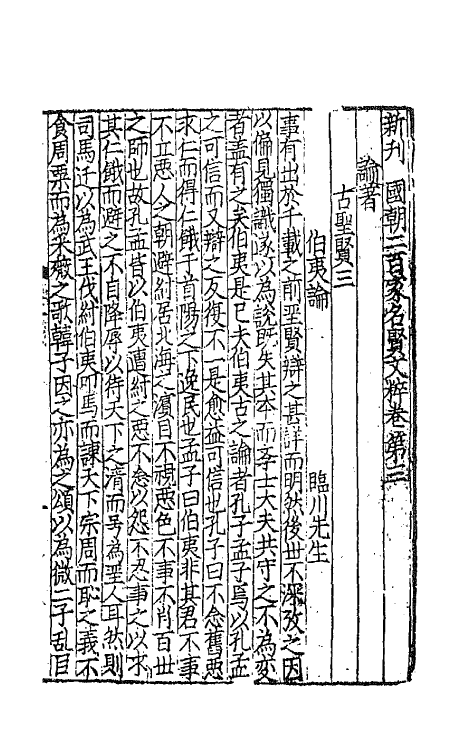 新刋國朝二百家名賢文粹卷第三
論著
古聖賢三
伯夷論 臨川先生
事有出於千載之前聖賢辯之甚詳而明然後世不深攷之因
以偏見獨識遂以為說旣失其夲而學士大夫共守之不為變
者蓋有之矣伯夷是已夫伯夷古之論者孔子孟子焉以孔孟
之可信而又辯之反復不一是愈益可信也孔子曰不念舊惡
求仁而得仁餓于首陽之下逸民也孟子曰伯夷非其君不事
不立惡人之朝避紂居北海之濱目不視惡色不事不肖百世
之師也故孔孟皆以伯夷遭紂之惡不念以怨不忍事之以求
其仁餓而避之不自降辱以待天下之清而号為聖人耳然則
司馬迁以為武王伐紂伯夷叩馬而諫天下宗周而恥之義不
食周粟而為采薇之歌韓子因之亦為之頌以為微二子乱臣